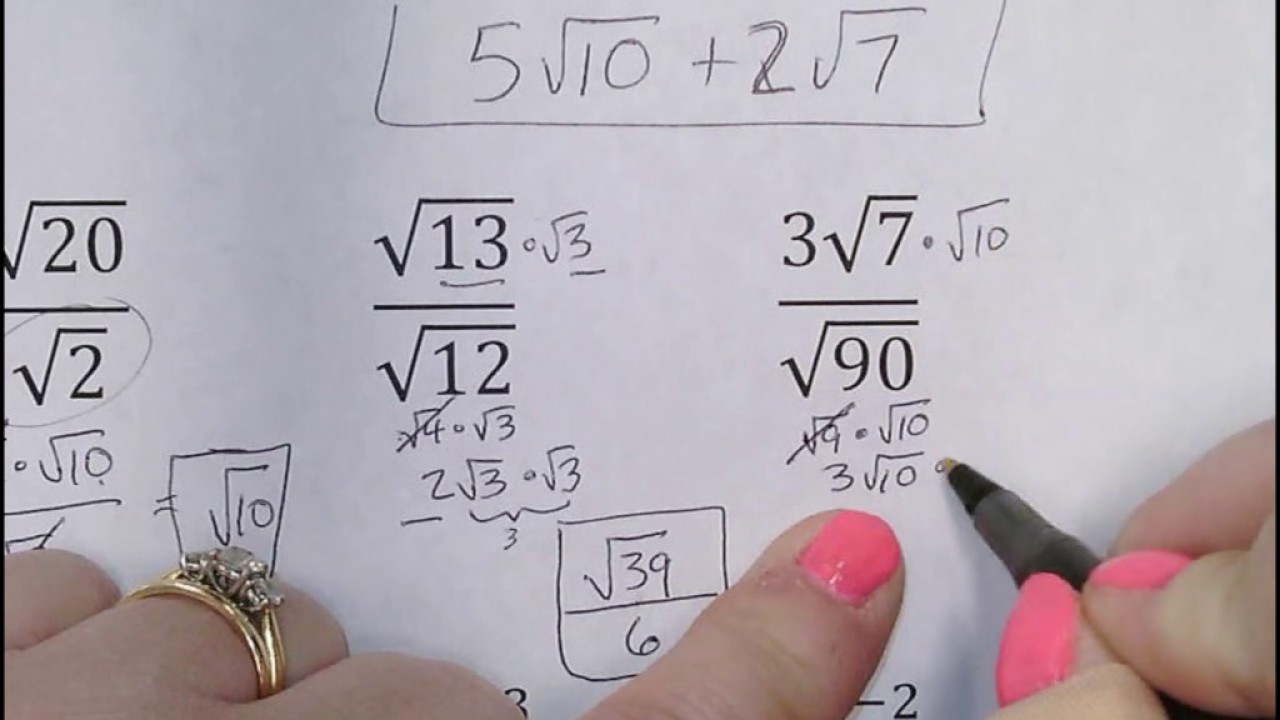 5√10 + 2√7
√20
√2
· √10
= √10
√13 · √3
√12
√4 · √3
2√3 · √3
3
√39
6
3√7 · √10
√90
√9 · √10
3√10 ·
3
−2